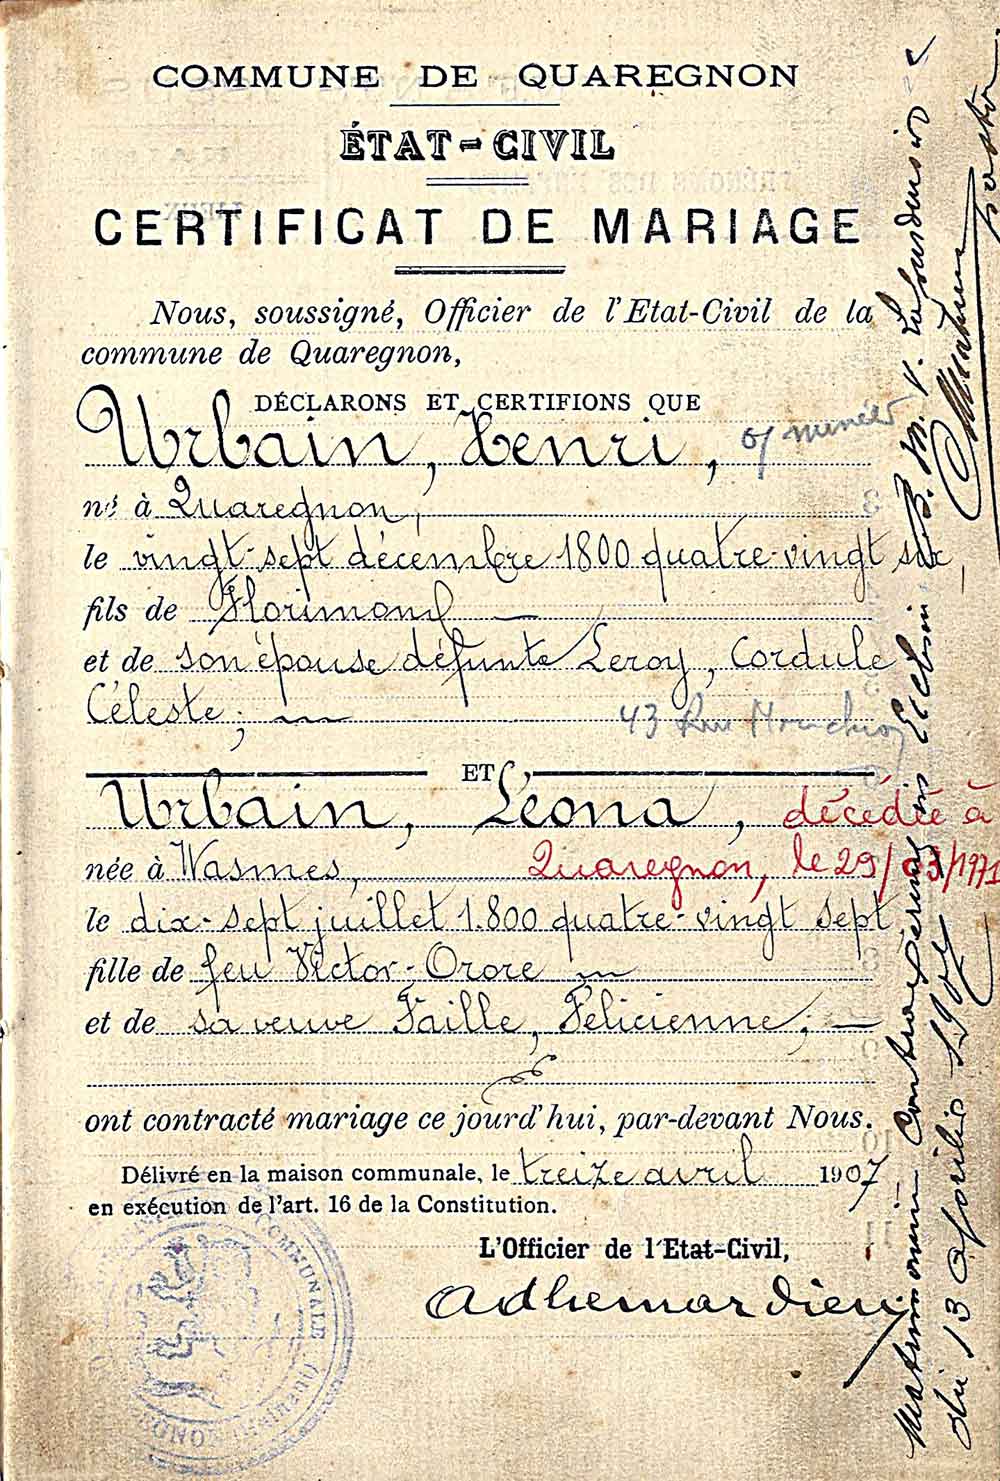 COMMUNE DE QUAREGNON
ÉTAT-CIVIL
CERTIFICAT DE MARIAGE
Nous, soussigné, Officier de l'Etat-Civil de la
commune de Quaregnon,
DÉCLARONS ET CERTIFIONS QUE
Urbain, Henri,
né à Quaregnon,
le vingt-sept décembre 1800 quatre-vingt six,
fils de Florimond —
et de son épouse défunte Leroy, Cordule
Céleste;
43 Rue
ET
Urbain, Léona, décédée à
née à Wasmes, Quaregnon, le 29/03/1971
le dix-sept juillet 1.800 quatre-vingt sept,
fille de feu Victor-Orore
et de sa veuve Faille, Félicienne; —
ont contracté mariage ce jourd'hui, par-devant Nous.
Délivré en la maison communale, le treize avril 1907
en exécution de l'art. 16 de la Constitution.
L'Officier de l'Etat-Civil,
Adhemar Dieu
COMMUNALE
Matrimonium Contraxerunt in Ecclesia B. M. V.
die 13 aprilis 1907